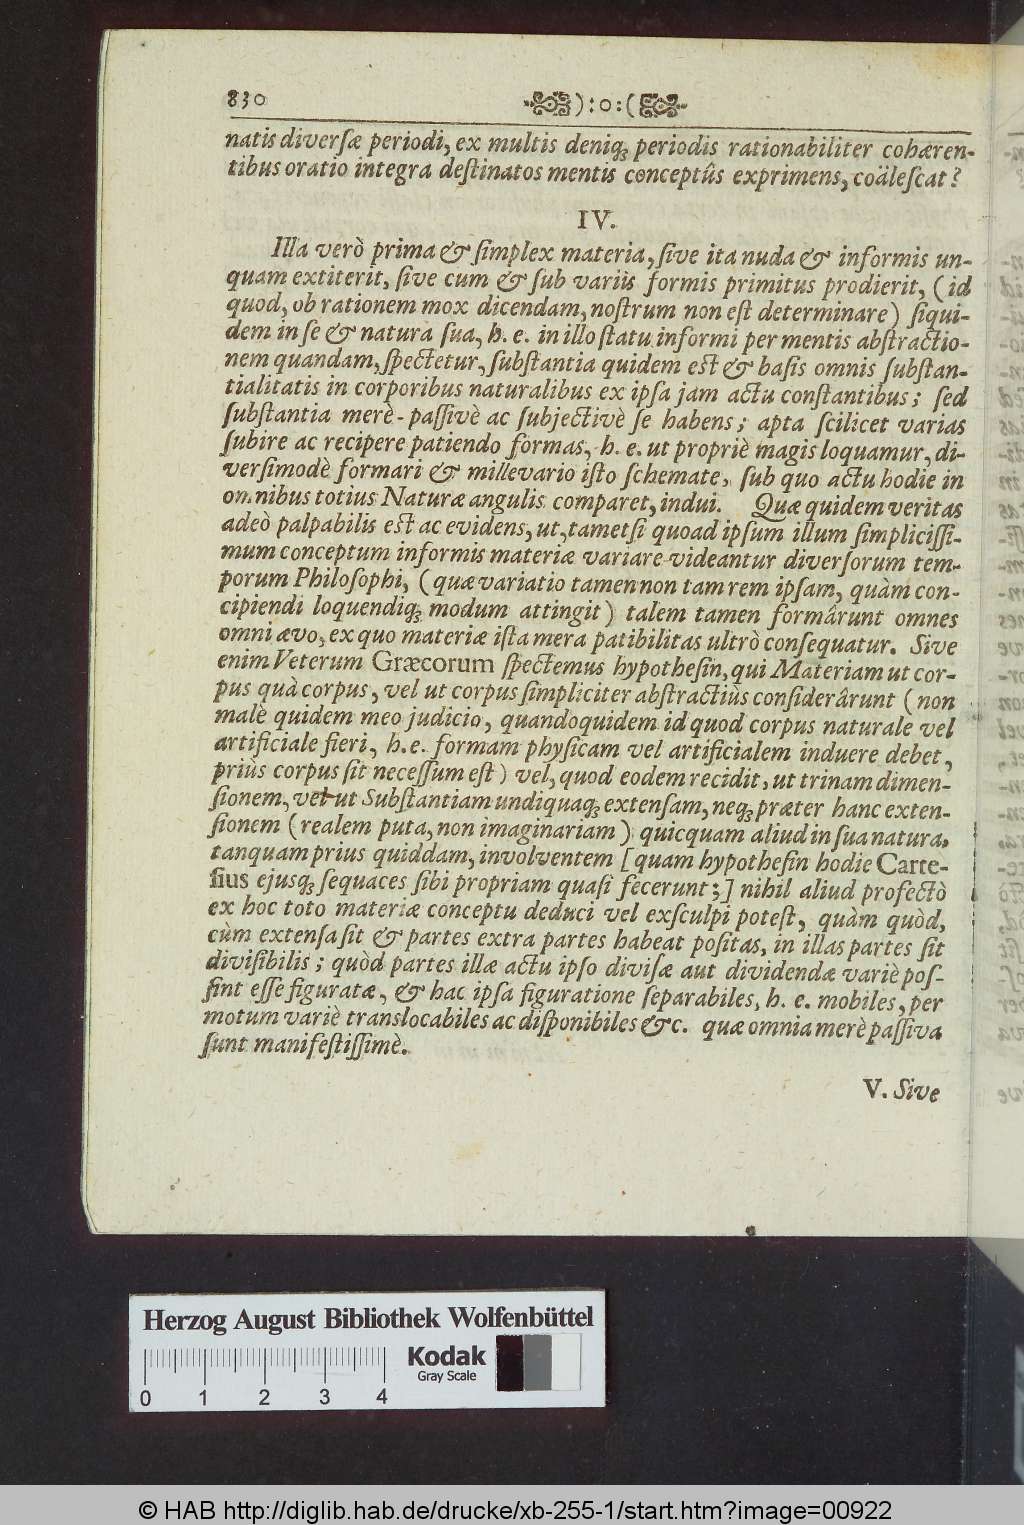 830 ):o:(
natis diversæ periodi, ex multis deniqꝫ periodis rationabiliter cohæren-
tibus oratio integra destinatos mentis conceptûs exprimens, coälescat?
IV.
Illa verò prima & simplex materia, sive ita nuda & informis un-
quam extiterit, sive cum & sub variis formis primitus prodierit, (id
quod, ob rationem mox dicendam, nostrum non est determinare) siqui-
dem in se & natura sua, h. e. in illo statu informi per mentis abstractio-
nem quandam, spectetur, substantia quidem est & basis omnis substan-
tialitatis in corporibus naturalibus ex ipsa jam actu constantibus; sed
substantia merè-passivè ac subjectivè se habens; apta scilicet varias
subire ac recipere patiendo formas, h. e. ut propriè magis loquamur, di-
versimodè formari & millevario isto schemate, sub quo actu hodie in
omnibus totius Naturæ angulis comparet, indui. Quæ quidem veritas
adeò palpabilis est ac evidens, ut, tametsi quoad ipsum illum simplicissi-
mum conceptum informis materiæ variare videantur diversorum tem-
porum Philosophi, (quæ variatio tamen non tam rem ipsam, quàm con-
cipiendi loquendiqꝫ modum attingit) talem tamen formârunt omnes
omni ævo, ex quo materiæ ista mera patibilitas ultrò consequatur. Sive
enim Veterum Græcorum spectemus hypothesin, qui Materiam ut cor-
pus quà corpus, vel ut corpus simpliciter abstractiùs considerârunt (non
malè quidem meo judicio, quandoquidem id quod corpus naturale vel
artificiale fieri, h.e. formam physicam vel artificialem induere debet,
priùs corpus sit necessum est) vel, quod eodem recidit, ut trinam dimen-
sionem, vel ut Substantiam undiquaqꝫ extensam, neqꝫ præter hanc exten-
sionem (realem puta, non imaginariam) quicquam aliud in sua natura,
tanquam prius quiddam, involventem [quam hypothesin hodie Carte-
sius ejusqꝫ sequaces sibi propriam quasi fecerunt;] nihil aliud profectò
ex hoc toto materiæ conceptu deduci vel exsculpi potest, quàm quòd,
cùm extensa sit & partes extra partes habeat positas, in illas partes sit
divisibilis; quòd partes illæ actu ipso divisæ aut dividendæ variè pos-
sint esse figuratæ, & hac ipsa figuratione separabiles, h. e. mobiles, per
motum variè translocabiles ac disponibiles &c. quæ omnia merè passiva
sunt manifestissimè.
V. Sive
Herzog August Bibliothek Wolfenbüttel
Kodak
Gray Scale
0 1 2 3 4
© HAB http://diglib.hab.de/drucke/xb-255-1/start.htm?image=00922